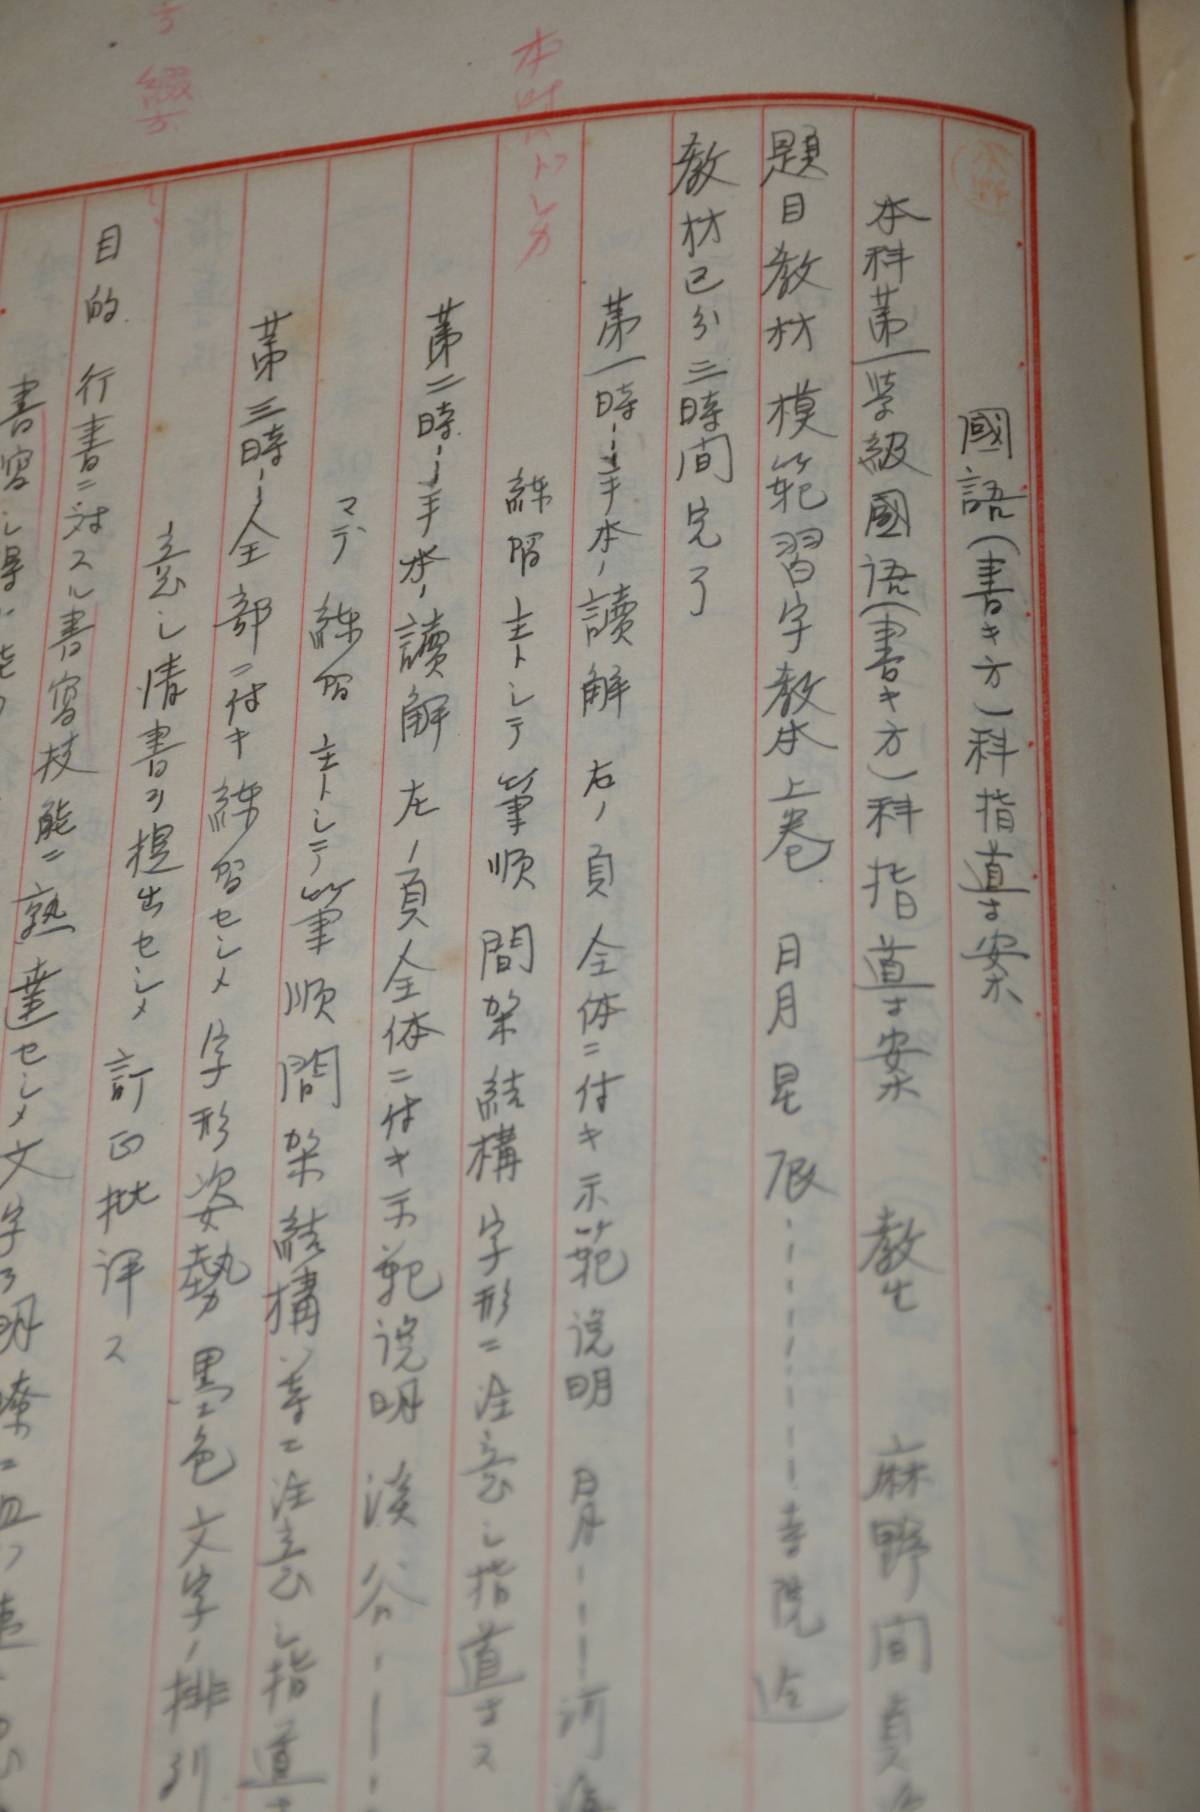 國語(書キ方)科指導案
本科第一学級國語(書キ方)科指導案 教生 麻野間貞
題目教材 模範習字教本上巻 日月星辰-------寺院迄
教材区分 三時間完了
第一時---手本ノ讀解 右ノ頁全体ニ付キ示範说明 日月---河海
練習 主トシテ筆順 間架結構 字形ニ注意シ指導ス
第二時---手本ノ讀解 左ノ頁全体ニ付キ示範说明 渓谷---
マデ 練習 主トシテ筆順 間架結構 等ニ注意シ指導
第三時---全部ニ付キ練習セシメ 字形姿勢 墨色 文字ノ排列
意シ清書ヲ提出セシメ 訂正批評ス
目的 行書ニ対スル書寫技能ニ熟達セシメ文字ヲ明瞭ニ且ツ
書寫シ得ル能
本時トシカ
綴方